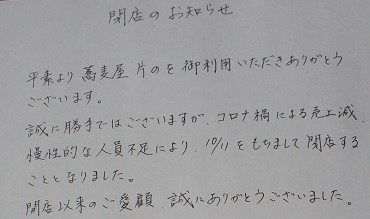 閉店のお知らせ
平素より蕎麦屋 片のを御利用いただきありがとう
ございます。
誠に勝手ではございますが、コロナ禍による売上減、
慢性的な人員不足により、10/11をもちまして閉店する
こととなりました。
開店以来のご愛顧、誠にありがとうございました。